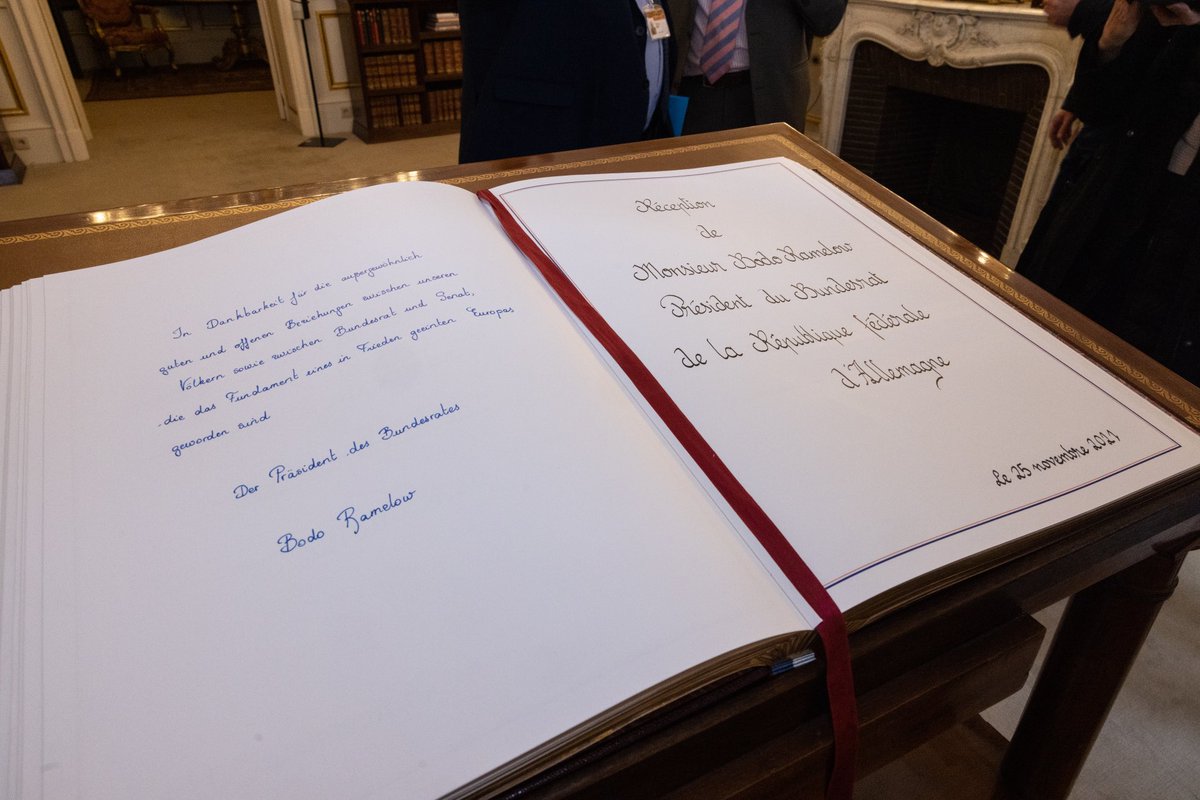 In Dankbarkeit für die außergewöhnlich
guten und offenen Beziehungen zwischen unseren
Völkern sowie zwischen Bundesrat und Senat,
die das Fundament eines in Frieden geeinten Europas
geworden sind
Der Präsident des Bundesrates
Bodo Ramelow
Réception
de
Monsieur Bodo Ramelow
Président du Bundesrat
de la République fédérale
d'Allemagne
Le 25 novembre 2021